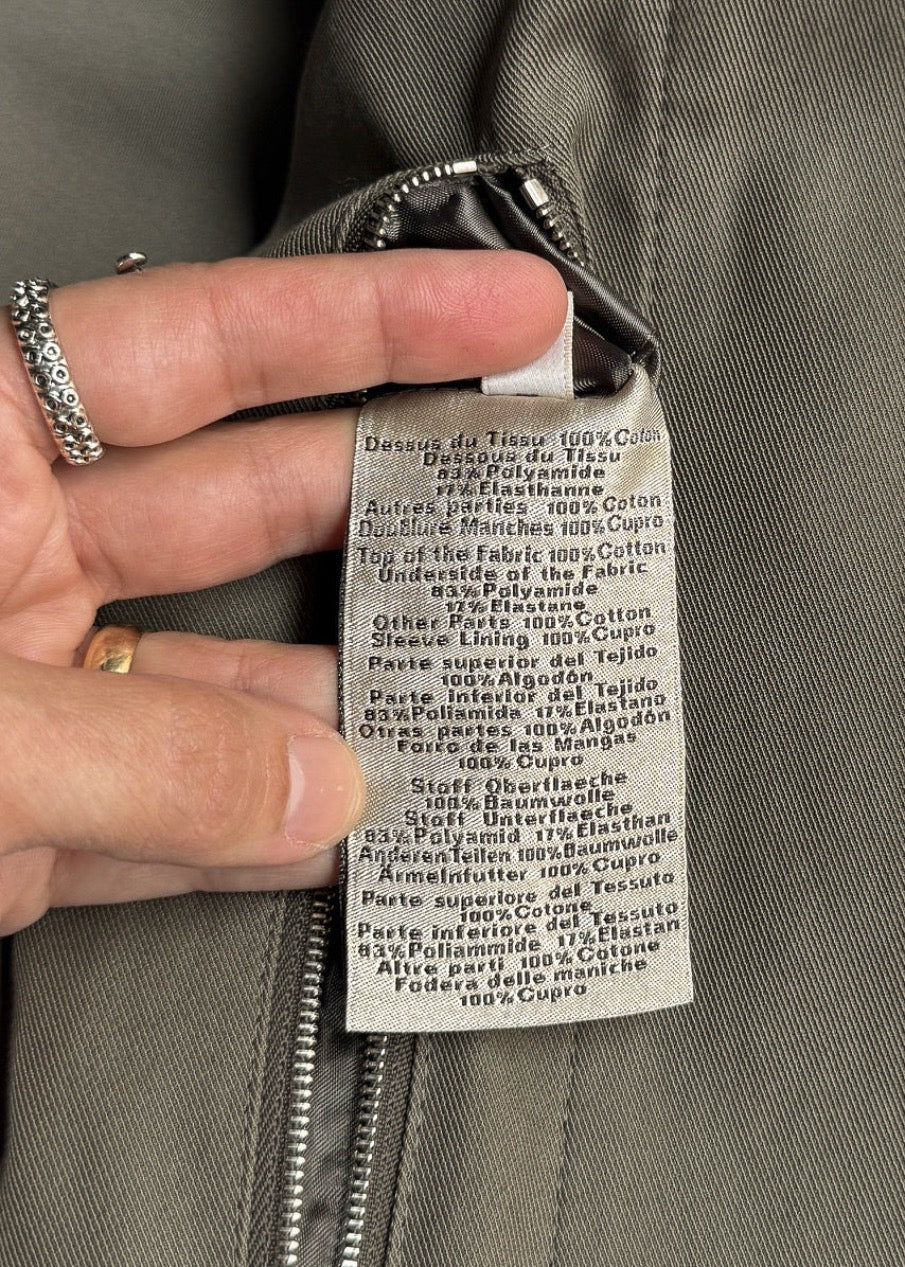 Dessus du Tissu 100%Coton
Dessous du Tissu
83%Polyamide
17%Elasthanne
Autres parties 100% Coton
Doublure Manches 100% Cupro
Top of the Fabric 100%Cotton
Underside of the Fabric
83%Polyamide
17%Elastane
Other Parts 100%Cotton
Sleeve Lining 100%Cupro
Parte superior del Tejido
100%Algodón
Parte inferior del Tejido
83%Poliamida 17%Elastano
Otras partes 100%Algodón
Forro de las Mangas
100%Cupro
Stoff Oberflaeche
100%Baumwolle
Stoff Unterflaeche
83%Polyamid 17%Elasthan
Anderen Teilen 100%Baumwolle
Ärmelnfutter 100%Cupro
Parte superiore del Tessuto
100%Cotone
Parte inferiore del Tessuto
83%Poliammide 17%Elastan
Altre parti 100% Cotone
Fodera delle maniche
100%Cupro